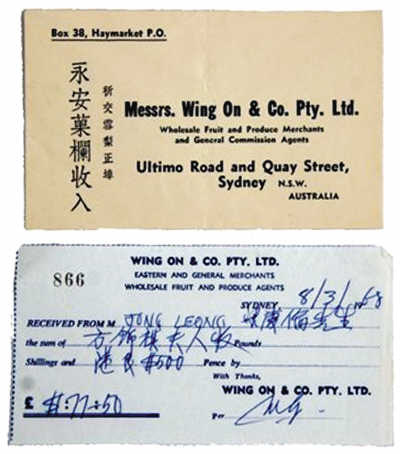 Box 38, Haymarket P.O.
祈交雪梨正埠
永安菓欄收入
Messrs. Wing On & Co. Pty. Ltd.
Wholesale Fruit and Produce Merchants
and General Commission Agents
Ultimo Road and Quay Street,
Sydney N.S.W.
AUSTRALIA
WING ON & CO. PTY. LTD.
866
EASTERN AND GENERAL MERCHANTS
WHOLESALE FRUIT AND PRODUCE AGENTS
SYDNEY, 8/3/1968
RECEIVED FROM M JONG LEONG 先生
the sum of 方錦棋夫人收 Pounds
Shillings and 港民$500 Pence by
With Thanks,
WING ON & CO. PTY. LTD.
£ $:77-50
Per